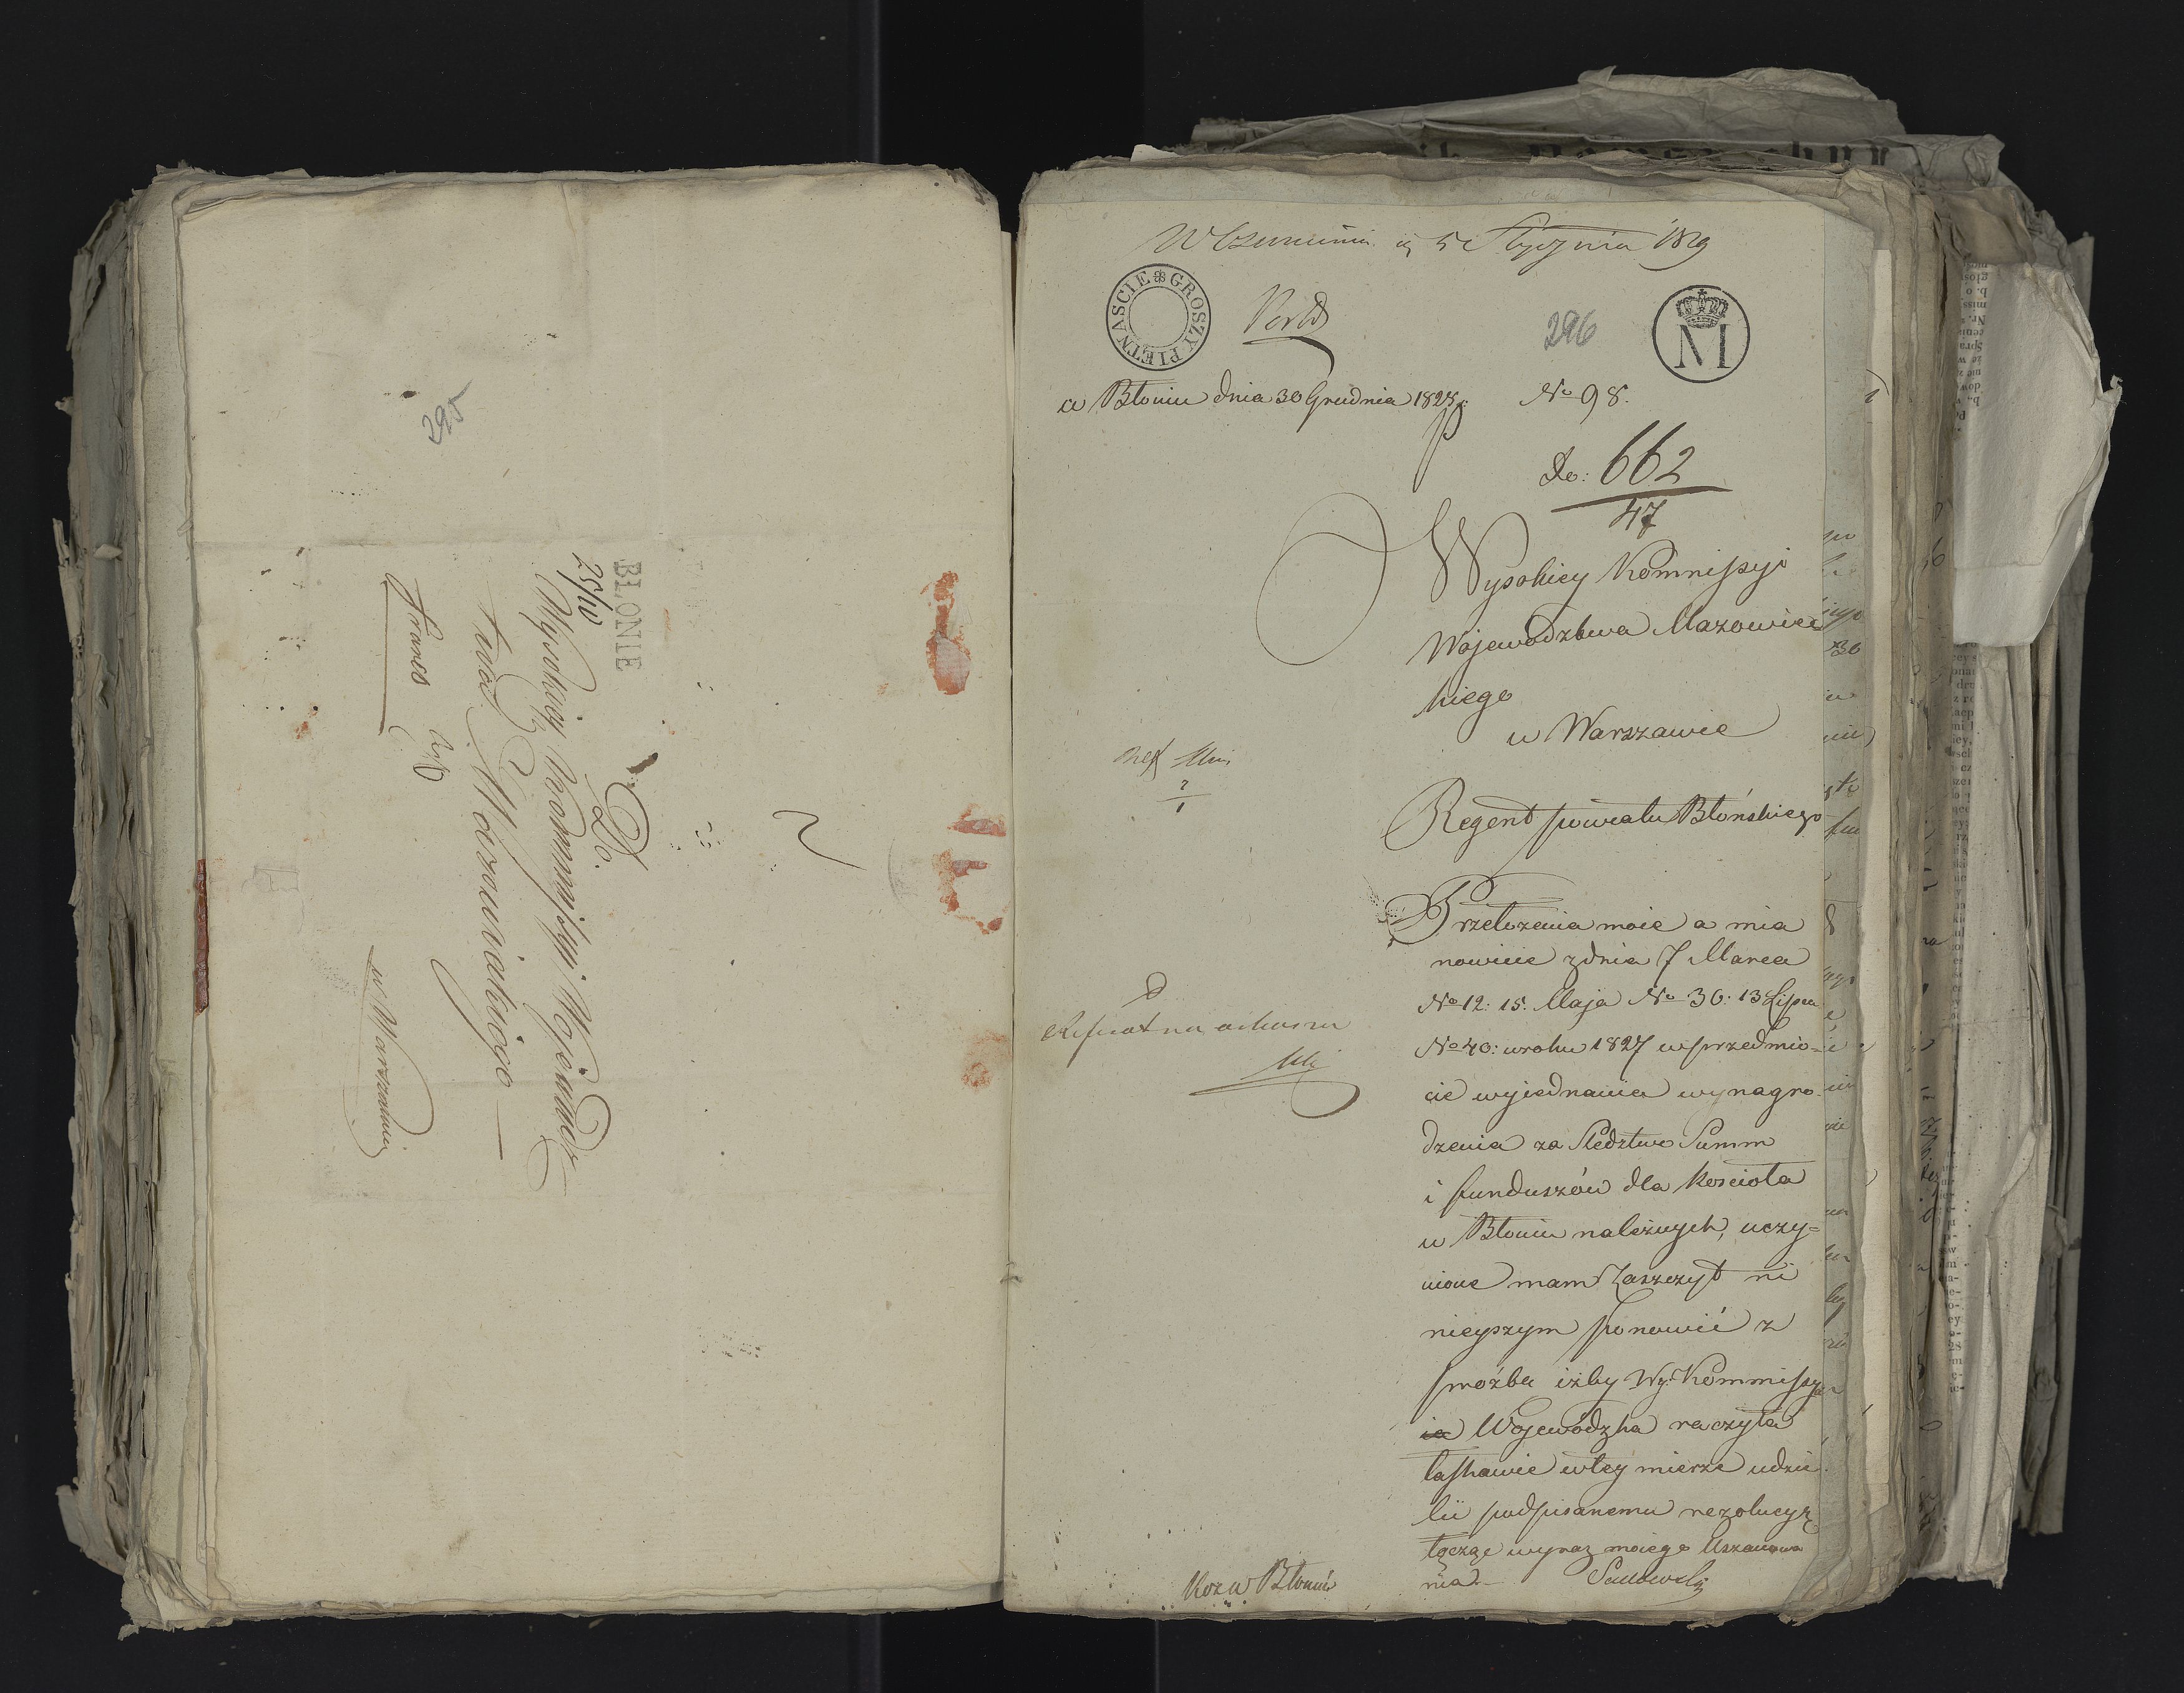 295
BLONIE
25/w
Do.
Wysokiey Kommissyi Wojewódz
twa Mazowieckiego
franco
w Warszawie
5 Stycznia 1829
GROSZY PIĘTNAŚCIE
296
M
w Błoniu dnia 30 Grudnia 1828.
No 98.
Do: 662
47
Wysokiey Kommissyi
Wojewodztwa Mazowiec
kiego
w Warszawie
Regent powiatu Błońskiego
Przełożenia moie a mia
nowicie z dnia 7 Marca
No 12: 15. Maja No 36: 13 Lipca
No 40: w roku 1827 w przedmio=
cie wyjednania wynagro
dzenia za Sledztwo Summ
i funduszów dla Kościoła
w Błoniu należnych, uczy=
nione mam Zaszczyt ni
nieyszym ponowić z
proźbą iżby Wy: Kommissya
ia Wojewódzka raczyła
łaskawie w tey mierze udzie
lić podpisanemu rezolucyą
łącząc wyraz moiego Uszanowa
nia.
Referat na arkuszu
w Błoniu